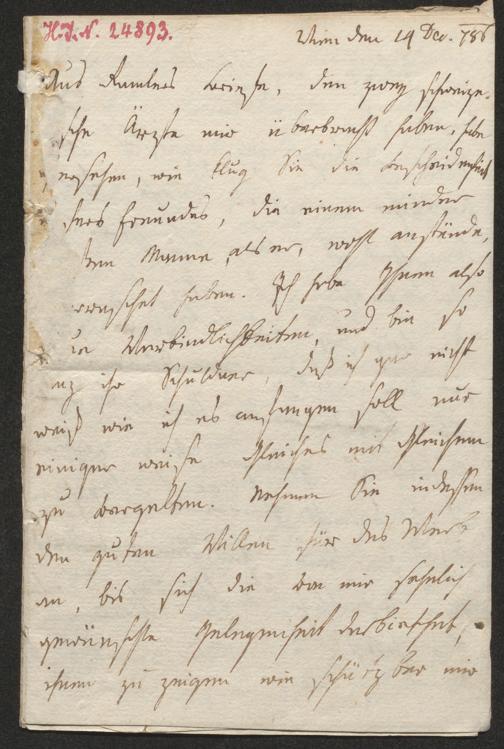 H.I.N. 24893.
Wien den 14 Dec. 786
Aus Ramlers Briefe, den zwey schweize-
sche Ärzte mir überbracht haben, habe
ersehen, wie klug Sie die Bescheidenheit
Ihres Freundes, die einem minder
Manne, als er, wohl anstünde,
haben. Ich habe Ihnen also
Verbindlichkeiten, und bin so
ganz ihr Schuldner, daß ich gar nicht
weiß wie ich es anfangen soll nur
einiger weise Gleiches mit Gleichem
zu vergelten. Nehmen Sie indessen
den guten Willen für das Werk
an, bis sich die von mir sehnlich
gewünschte Gelegenheit darbiethet,
ihnen zu zeigen wie schäzbar mir